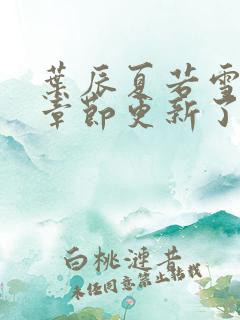 葉辰夏若雪
章節更新了
白桃漣昔
未经同意禁止转载